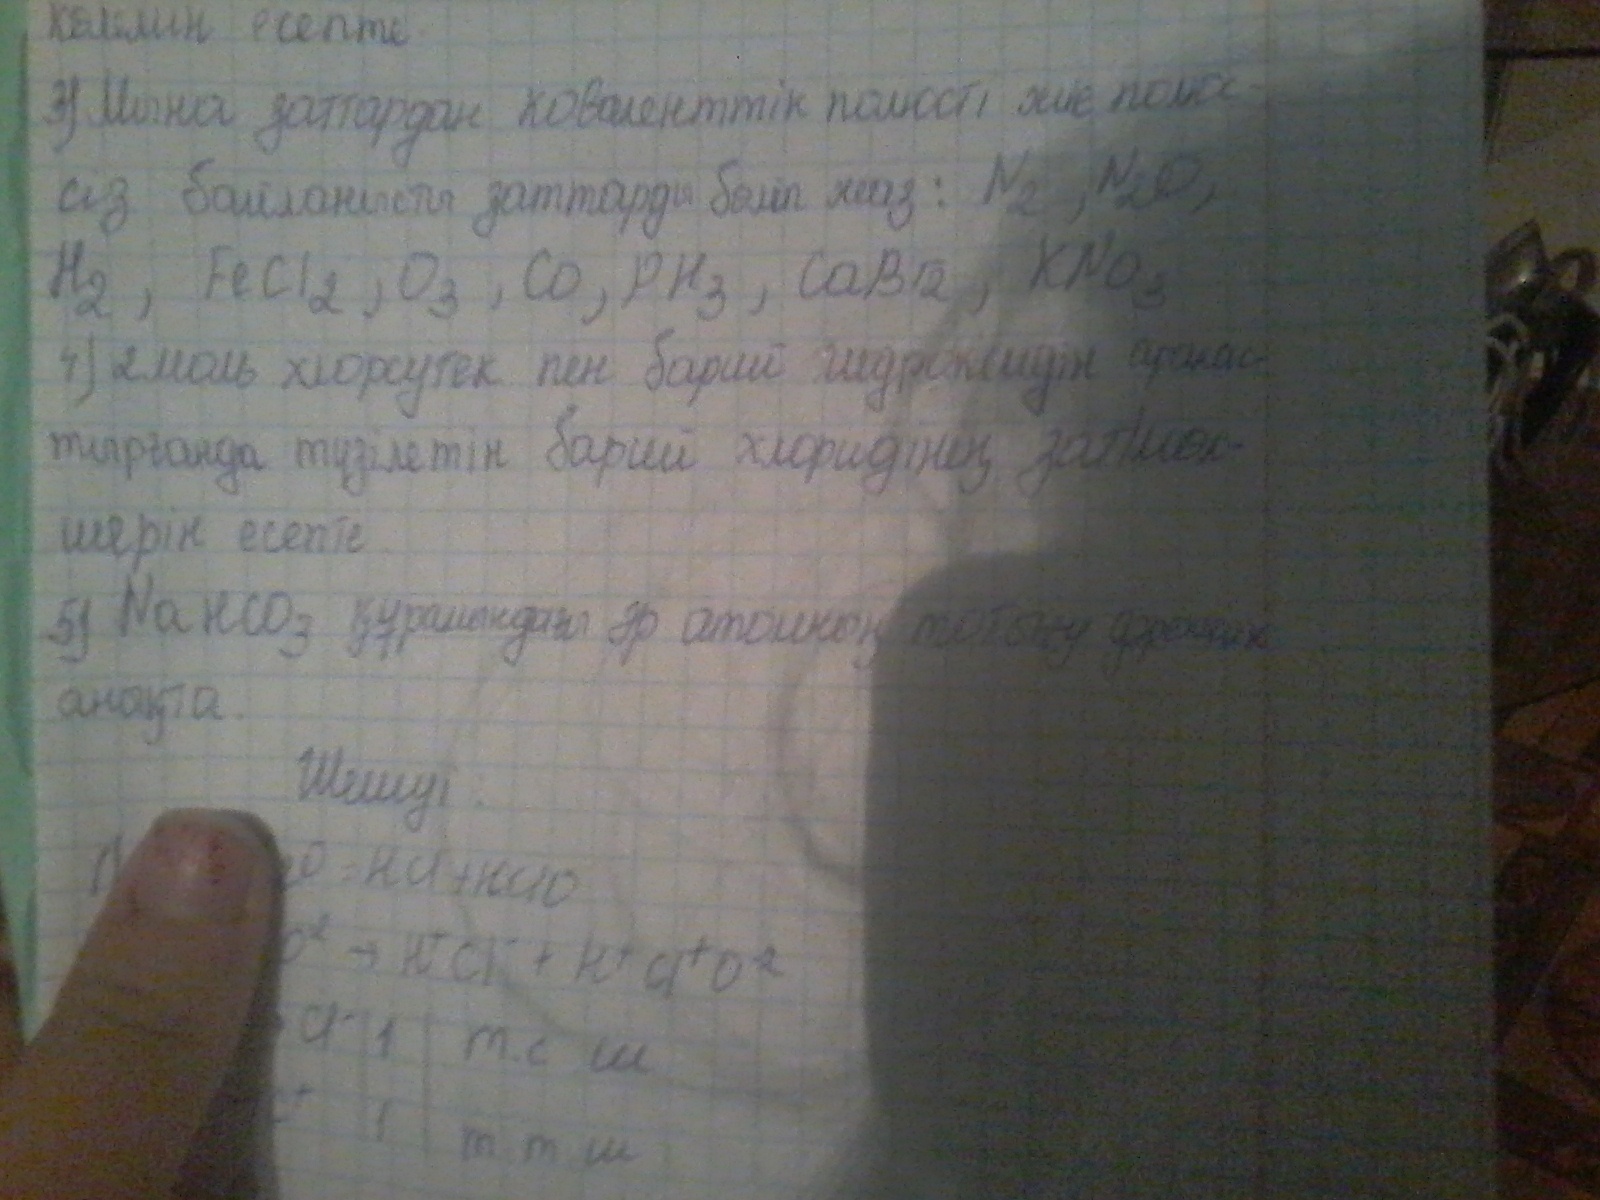 көлемін есепте.
3) Мына заттардан коваленттік полюсті және полюс-
сіз байланысты заттарды бөліп жаз: N2, N2O,
H2, FeCl2, O3, CO, PH3, CaBr2, KNO3
4) 2 моль хлорсутек пен барий гидроксидін араклас-
тырғанда түзілетін барий хлоридінің зат мөл-
шерін есепте
5) NaHCO3 құрамындағы әр атомның тотығу дәрежесін
анықта.
Шешуі:
1) O = HCl + HClO
O² → H⁺Cl⁻ + H⁺Cl⁺O⁻²
Cl⁻ 1 | т.с ш
⁺ 1 | т т ш